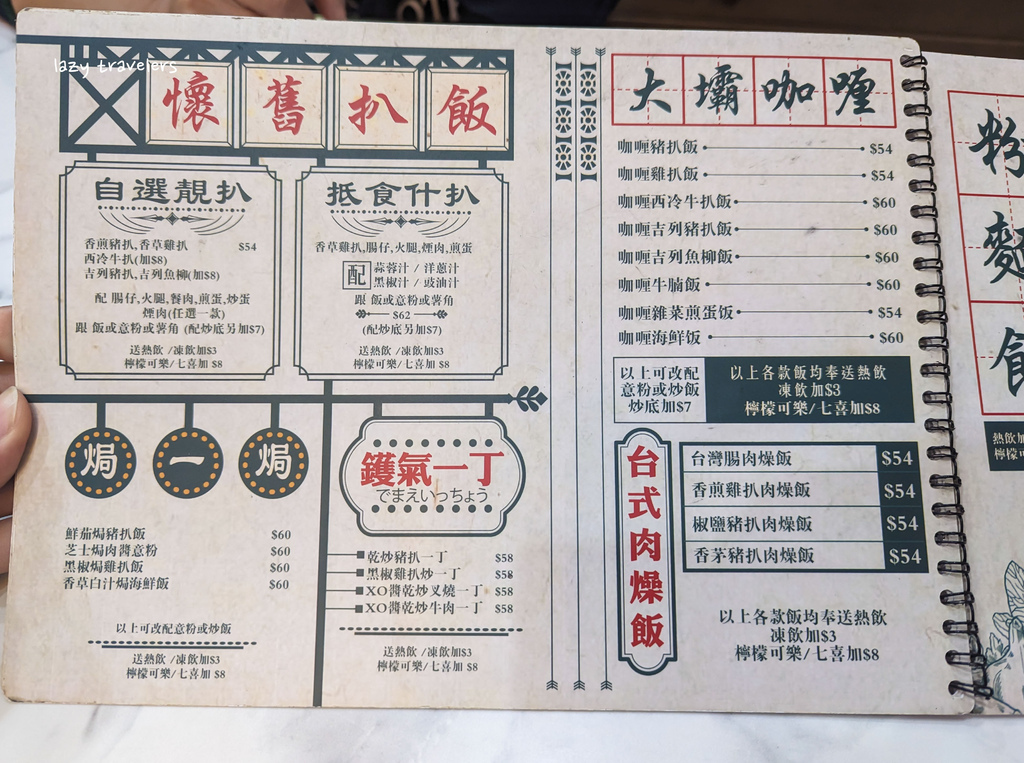 lazy travelers
懷舊扒飯
自選靚扒
香煎豬扒,香草雞扒 $54
西冷牛扒(加$8)
吉列豬扒,吉列魚柳(加$8)
配 腸仔,火腿,餐肉,煎蛋,炒蛋
煙肉(任選一款)
跟 飯或意粉或薯角 (配炒底另加$7)
送熱飲 /凍飲加$3
檸檬可樂/七喜加 $8
抵食什扒
香草雞扒,腸仔,火腿,煙肉,煎蛋
配 蒜蓉汁 / 洋蔥汁
黑椒汁 / 豉油汁
跟 飯或意粉或薯角
$62
(配炒底另加$7)
送熱飲 /凍飲加$3
檸檬可樂/七喜加 $8
焗一焗
鮮茄焗豬扒飯 $60
芝士焗肉醬意粉 $60
黑椒焗雞扒飯 $60
香草白汁焗海鮮飯 $60
以上可改配意粉或炒飯
送熱飲 /凍飲加$3
檸檬可樂/七喜加 $8
鑊氣一丁
でまえいっちょう
乾炒豬扒一丁 $58
黑椒雞扒炒一丁 $58
XO醬乾炒叉燒一丁 $58
XO醬乾炒牛肉一丁 $58
送熱飲 /凍飲加$3
檸檬可樂/七喜加 $8
大壩咖喱
咖喱豬扒飯 $54
咖喱雞扒飯 $54
咖喱西冷牛扒飯 $60
咖喱吉列豬扒飯 $60
咖喱吉列魚柳飯 $60
咖喱牛腩飯 $60
咖喱雜菜煎蛋饭 $54
咖喱海鮮饭 $60
以上可改配
意粉或炒飯
炒底加$7
以上各款飯均奉送熱飲
凍飲加$3
檸檬可樂/七喜加$8
台式肉燥飯
台灣腸肉燥飯 $54
香煎雞扒肉燥飯 $54
椒鹽豬扒肉燥飯 $54
香茅豬扒肉燥飯 $54
以上各款飯均奉送熱飲
凍飲加$3
檸檬可樂/七喜加$8
粉
麵
熱飲加
檸檬可